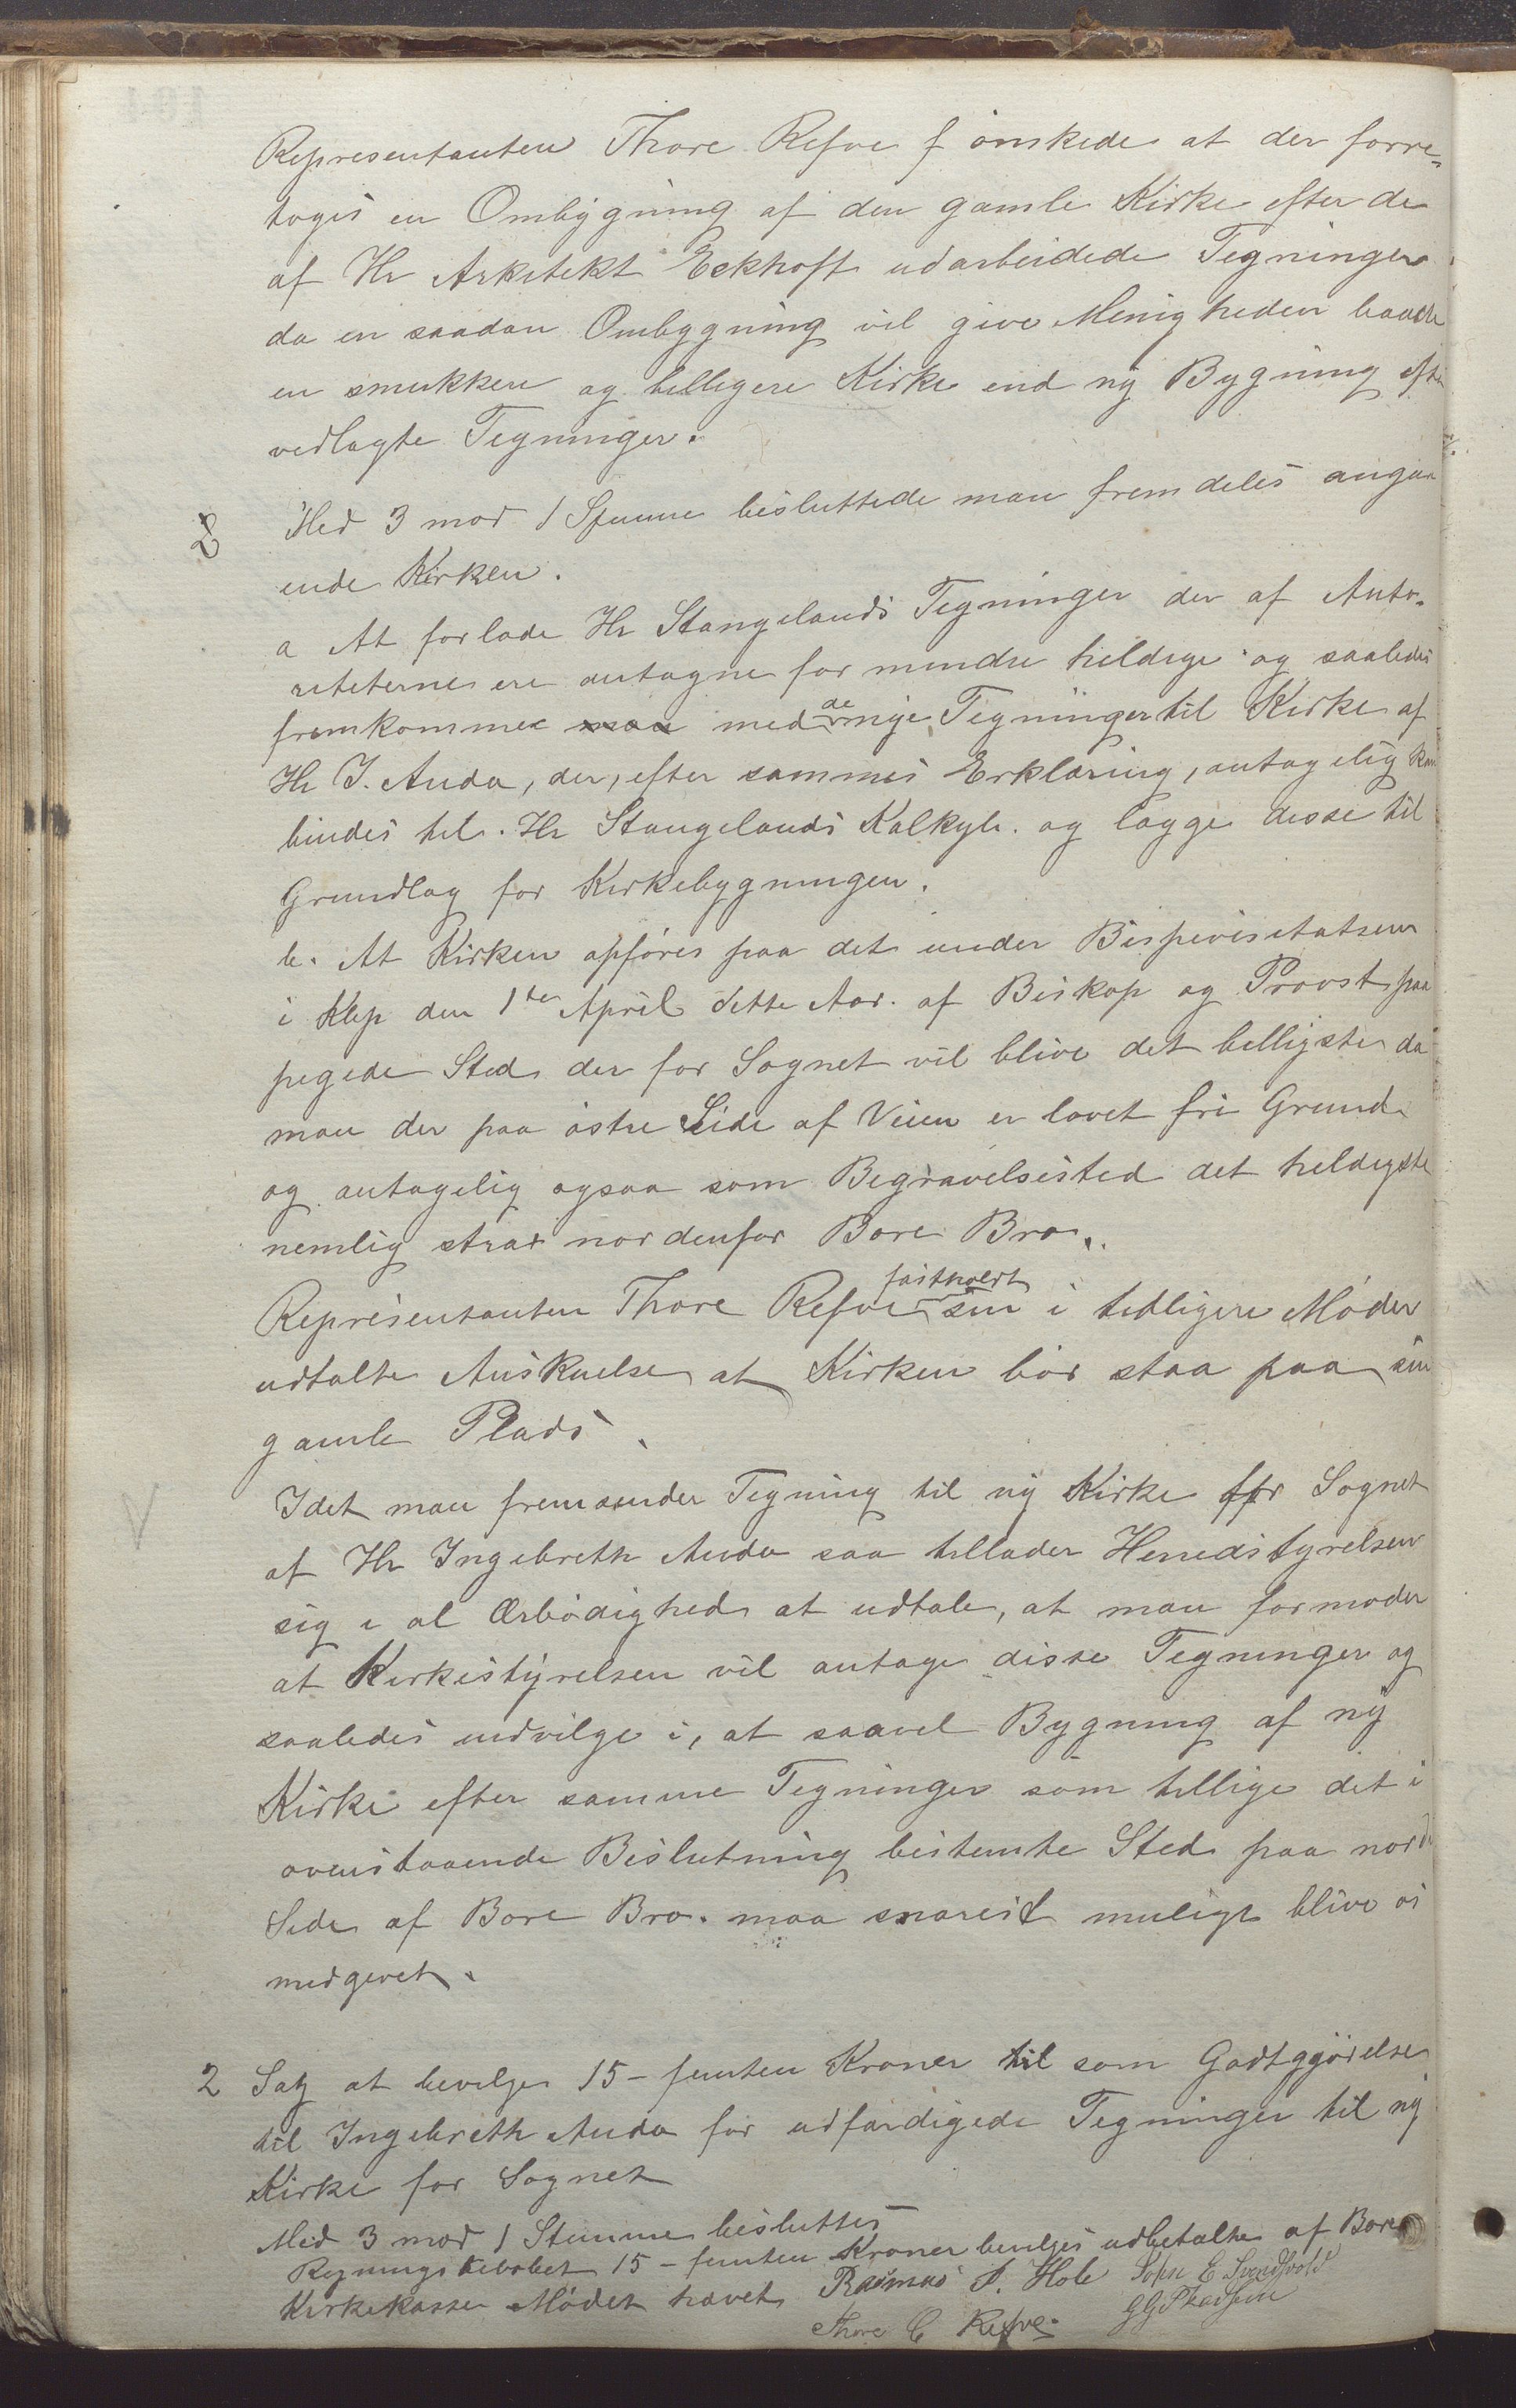 Representanten Thore Refve f ønskede at der forre-
toges en Ombygning af den gamle Kirke efter de
af Hr Arkitekt Eckhoff udarbeidede Tegninger
da en saadan Ombygning vil give Menigheden baade
en smukkere og billigere Kirke end ny Bygning efter
vedlagte Tegninger.
Med 3 mod 1 Stemme besluttede man fremdeles angaa
ende Kirken.
a At forlade Hr Stangelands Tegninger der af Auto-
riteterne ere antagne for mindre heldige og saaledes
fremkommer med de nye Tegninger til Kirke af
Hr I. Auda, der, efter sammes Erklæring, antagelig kan
bindes til Hr Stangelands Kalkyle. og lægge disse til
Grundlag for Kirkebygningen.
b. At Kirken opføres paa det under Bispevisitatsen
i Klep den 1ste April dette Aar. af Biskop og Provst paa
pegede Sted der for Sognet vil blive det billigste da
man der paa østre Side af Veien er lovet fri Grund
og antagelig ogsaa som Begravelsessted det heldigste
nemlig strax nordenfor Bore Bro.
Representanten Thore Refve fastholdt sin i tidligere Møder
udtalte Anskuelse at Kirken bør staa paa sin
gamle Plads.
Idet man fremsender Tegning til ny Kirke for Sognet
af Hr Ingebreth Auda saa tillader Herredstyrelsen
sig i al Ærbødighed at udtale, at man formoder
at Kirkestyrelsen vil antage disse Tegninger og
saaledes indvilge i, at saavel Bygning af ny
Kirke efter samme Tegninger som tillige det i
ovenstaaende Beslutning bestemte Sted paa nord
Side af Bore Bro. maa snarest muligt blive os
medgivet.
2 Sag at bevilges 15 - femten Kroner til som Godtggjørelse
til Ingebreth Auda for udfærdigede Tegninger til ny
Kirke for Sognet
Med 3 mod 1 Stemme besluttes
Regningsbeløbet 15 - femten Kroner bevilges udbetalte af Bore
Kirkekasse Mødet hævet Rasmus S. Hole E Svendsvold
Thore C Refve.